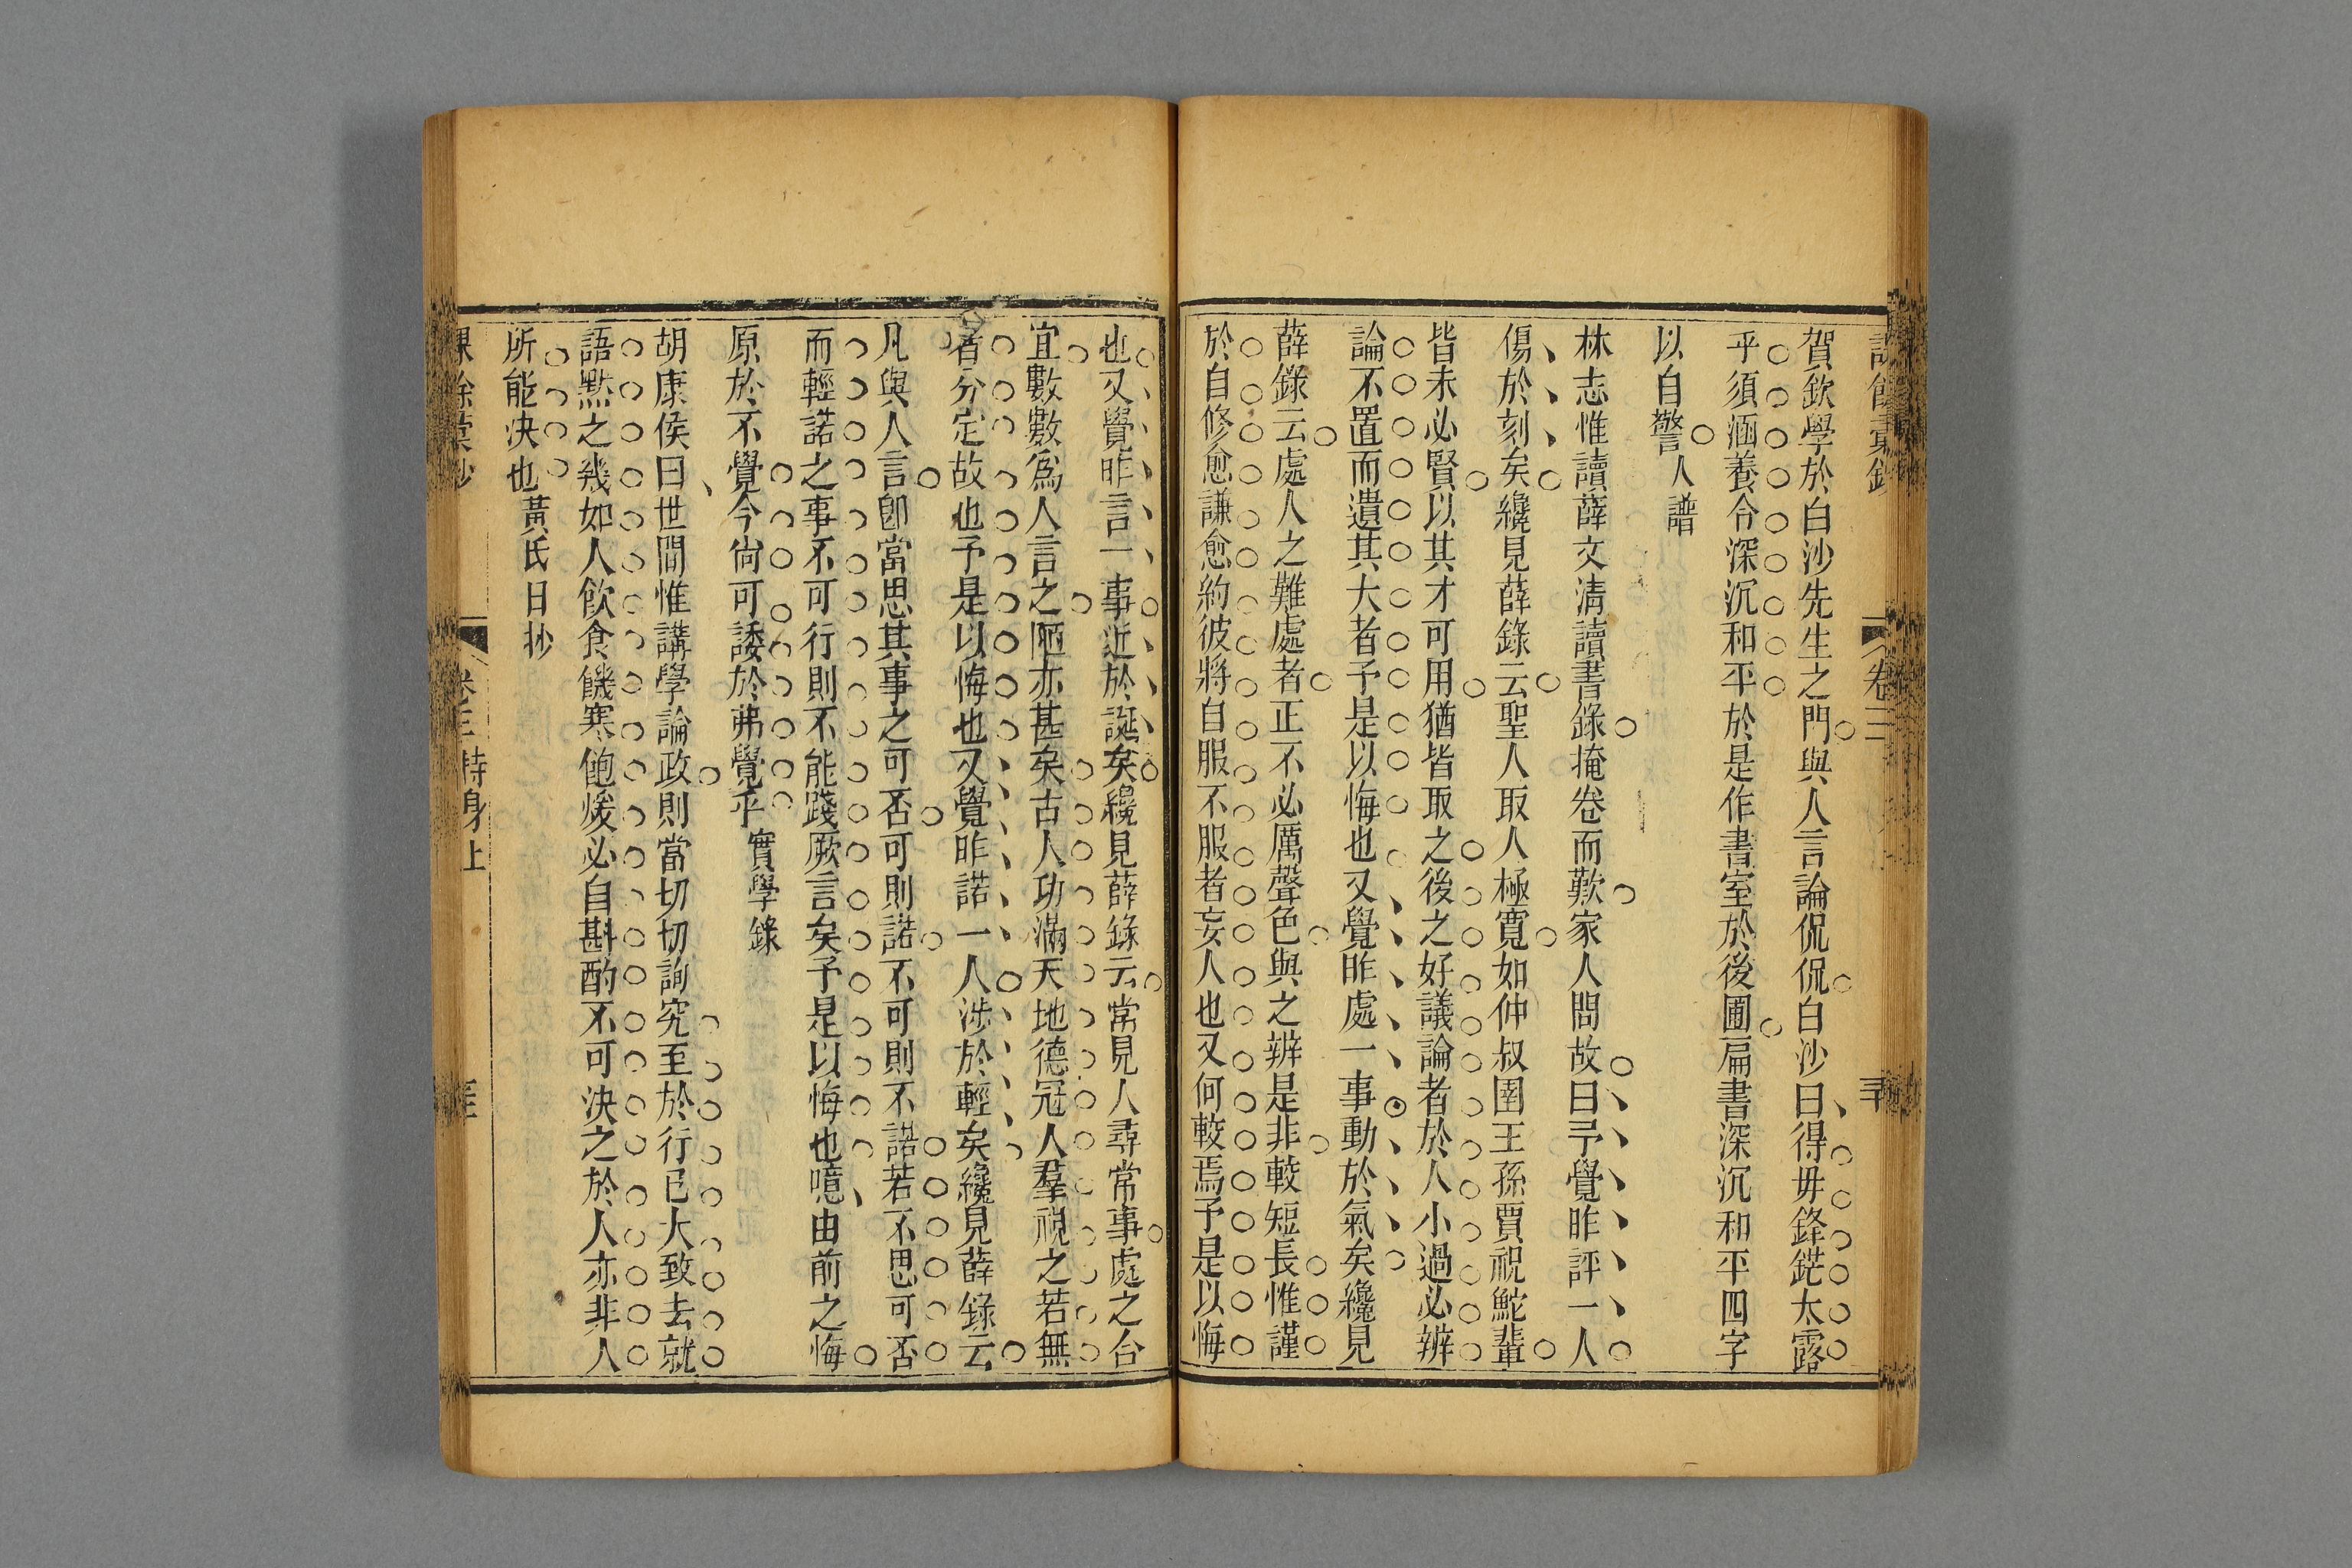 賀欽學於白沙先生之門與人言論侃侃白沙曰得毋鋒鋩太露
乎須涵養令深沉和平於是作書室於後圃扁書深沉和平四字
以自警人譜
林志惟讀薛文清讀書錄掩卷而歎家人問故曰予覺昨評一人
傷於刻矣纔見薛錄云聖人取人極寬如仲叔圉王孫賈祝鮀輩
皆未必賢以其才可用猶皆取之後之好議論者於人小過必辨
論不置而遺其大者予是以悔也又覺昨處一事動於氣矣纔見
薛錄云處人之難處者正不必厲聲色與之辨是非較短長惟謹
於自修愈謙愈約彼將自服不服者妄人也又何較焉予是以悔
也又覺昨言一事近於誕矣纔見薛錄云常見人尋常事處之合
宜數數爲人言之陋亦甚矣古人功滿天地德冠人羣視之若無
者分定故也予是以悔也又覺昨諾一人涉於輕矣纔見薛錄云
凡與人言卽當思其事之可否可則諾不可則不諾若不思可否
而輕諾之事不可行則不能踐厥言矣予是以悔也噫由前之悔
原於不覺今尙可諉於弗覺乎實學錄
胡康侯曰世間惟講學論政則當切切詢究至於行己大致去就
語默之幾如人飮食饑寒飽煖必自斟酌不可決之於人亦非人
所能決也黃氏日抄
卷三持身上